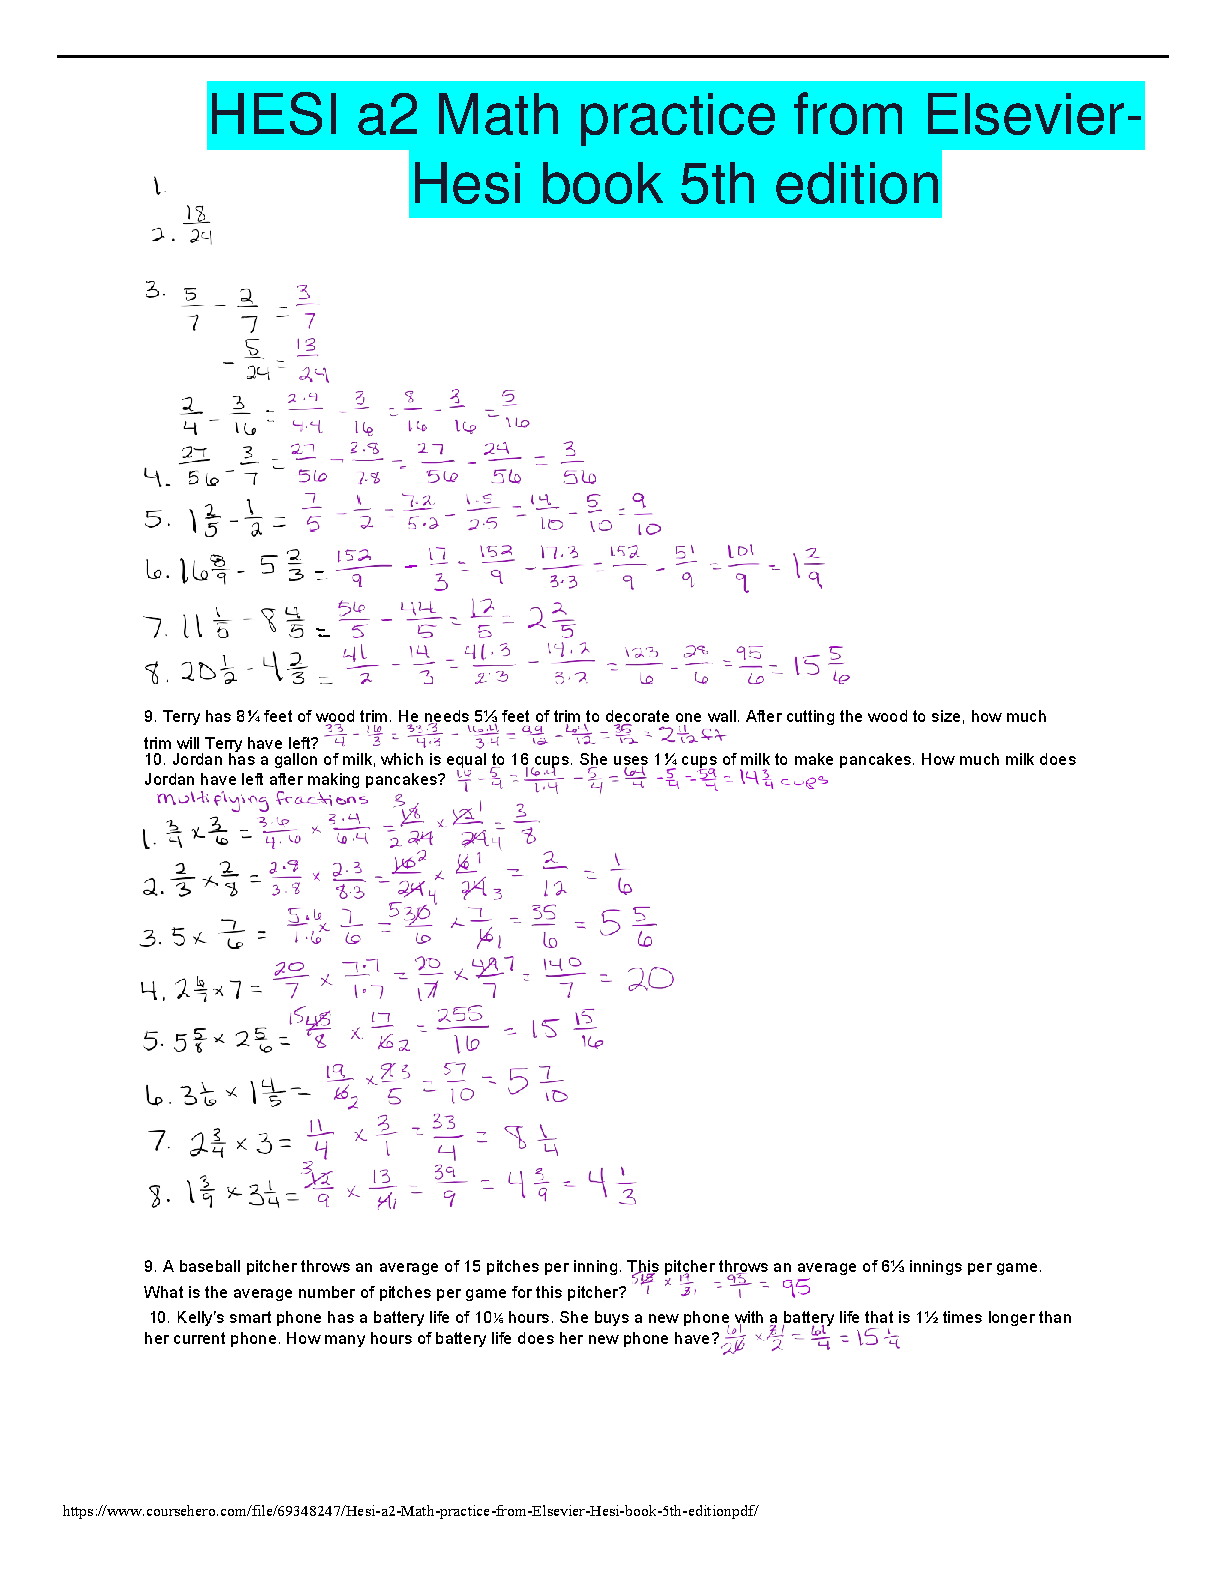 HESI a2 Math practice from Elsevier-
Hesi book 5th edition
1.
2. 18/24
3. 5/7 - 2/7 = 3/7
- 5/24 = 13/24
2/4 - 3/16 = 2·4/4·4 - 3/16 = 8/16 - 3/16 = 5/16
4. 27/56 - 3/7 = 27/56 - 3·8/7·8 = 27/56 - 24/56 = 3/56
5. 1 2/5 - 1/2 = 7/5 - 1/2 = 7·2/5·2 - 1·5/2·5 = 14/10 - 5/10 = 9/10
6. 16 8/9 - 5 2/3 = 152/9 - 17/3 = 152/9 - 17·3/3·3 = 152/9 - 51/9 = 101/9 = 1 2/9
7. 11 1/5 - 8 4/5 = 56/5 - 44/5 = 12/5 = 2 2/5
8. 20 1/2 - 4 2/3 = 41/2 - 14/3 = 41·3/2·3 - 14·2/3·2 = 123/6 - 28/6 = 95/6 = 15 5/6
9. Terry has 8¼ feet of wood trim. He needs 5⅓ feet of trim to decorate one wall. After cutting the wood to size, how much
trim will Terry have left? 33/4 - 16/3 = 33·3/4·3 - 16·4/3·4 = 99/12 - 64/12 = 35/12 = 2 11/12 ft
10. Jordan has a gallon of milk, which is equal to 16 cups. She uses 1¼ cups of milk to make pancakes. How much milk does
Jordan have left after making pancakes? 16/1 - 5/4 = 16·4/1·4 - 5/4 = 64/4 - 5/4 = 59/4 = 14 3/4 cups
multiplying fractions
1. 3/4 × 3/6 = 3·6/4·6 × 3·4/6·4 = 18/24 × 12/24 = 3/8
2. 2/3 × 2/8 = 2·8/3·8 × 2·3/8·3 = 16/24 × 6/24 = 2/12 = 1/6
3. 5 × 7/6 = 5·6/1·6 × 7/6 = 30/6 × 7/6 = 35/6 = 5 5/6
4. 2 6/7 × 7 = 20/7 × 7·7/1·7 = 20/17 × 49/7 = 140/7 = 20
5. 5 5/8 × 2 5/6 = 45/8 × 17/6 = 255/16 = 15 15/16
6. 3 1/6 × 1 4/5 = 19/6 × 9/5 = 57/10 = 5 7/10
7. 2 3/4 × 3 = 11/4 × 3/1 = 33/4 = 8 1/4
8. 1 3/9 × 3 1/4 = 12/9 × 13/4 = 39/9 = 4 3/9 = 4 1/3
9. A baseball pitcher throws an average of 15 pitches per inning. This pitcher throws an average of 6⅓ innings per game.
What is the average number of pitches per game for this pitcher? × 19/3 = 95/1 = 95
10. Kelly's smart phone has a battery life of 10⅙ hours. She buys a new phone with a battery life that is 1½ times longer than
her current phone. How many hours of battery life does her new phone have? 61/6 × 3/2 = 61/4 = 15 1/4
https://www.coursehero.com/file/69348247/Hesi-a2-Math-practice-from-Elsevier-Hesi-book-5th-editionpdf/